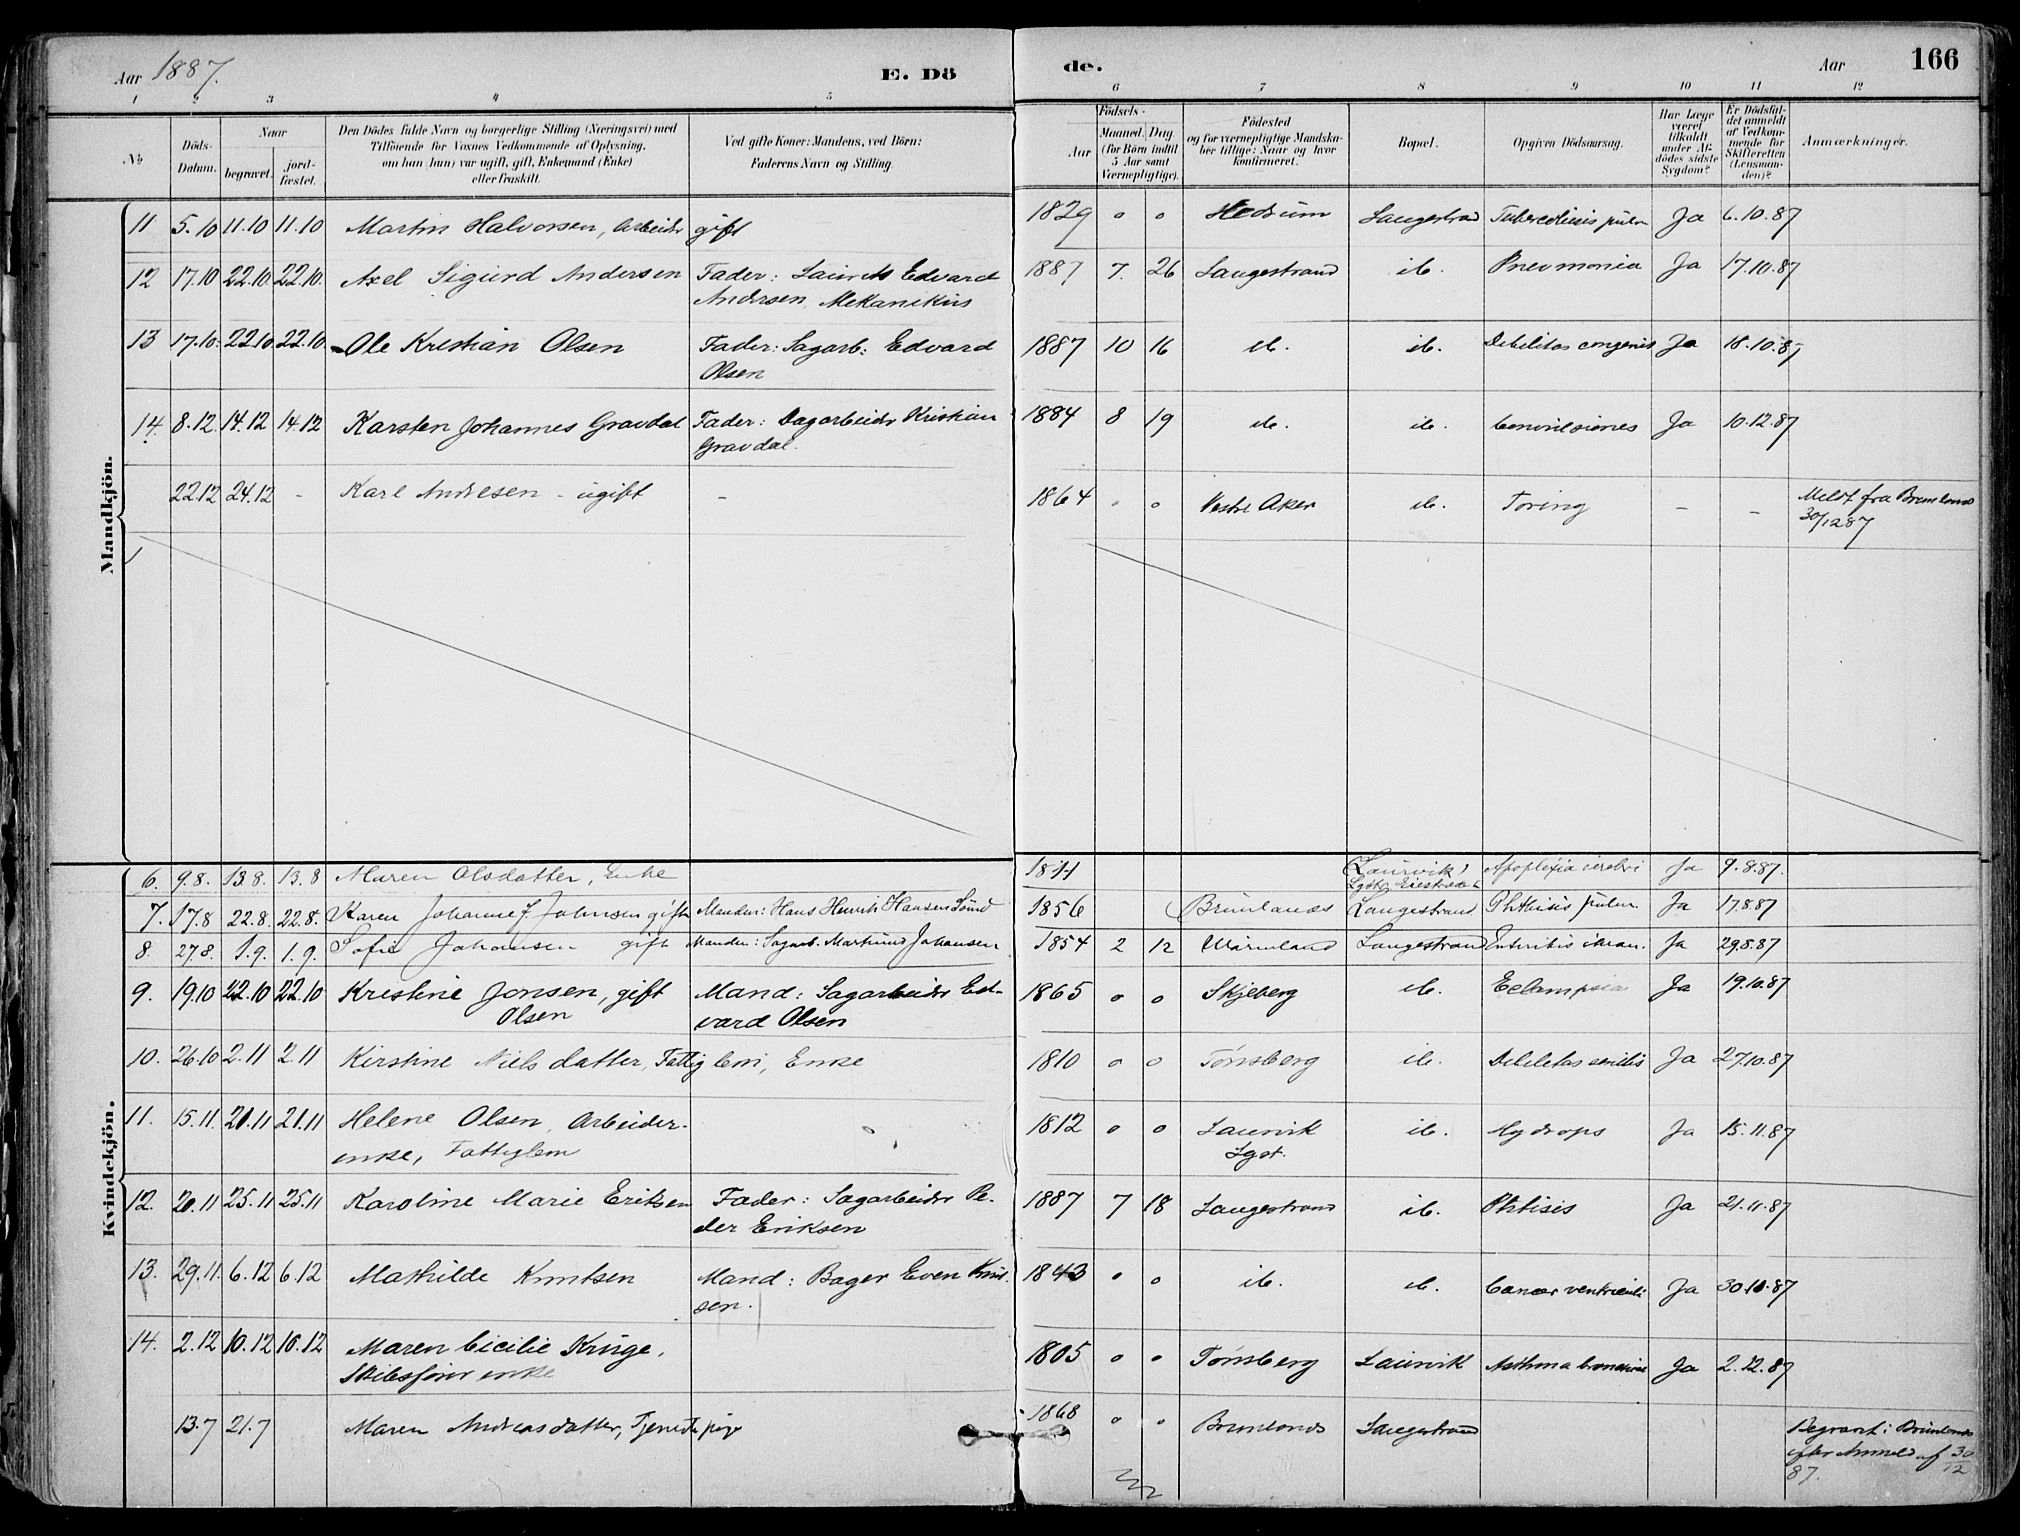 Aar 1887. E. Dö de. Aar 166
1 2 3 4 5 6 7 8 9 10 11 12
No Döds-Datum. Naar begravet. jord-fæstet. Den Dödes fulde Navn og borgerlige Stilling (Næringsvei) med Tilföiende for Voxnes Vedkommende af Oplysning, om han (hun) var ugift, gift, Enkemand (Enke) eller fraskilt. Ved gifte Koner: Mandens, ved Börn: Faderens Navn og Stilling. Födsels- Aar Maaned. Dag (for Börn indtil 5 Aar samt Værnepligtige). Födested og for værnepligtige Mandskaber tillige: Naar og hvor konfirmeret. Bopæl. Opgiven Dödsaarsag. Har Læge været tilkaldt under Afdödes sidste Sygdom? Er Dödsfaldet anmeldt af Vedkommende for Skifteretten (Lensmanden)? Anmærkninger.
Mandkjön.
11 5.10 11.10 11.10 Martin Halvorsen, Arbeider gift 1829 o o Hedrum Langestrand Tuberculosis pulm Ja 6.10.87
12 17.10 22.10 22.10. Axel Sigurd Andersen Fader: Laurits Edvard 1887 7. 26 Langestrand ib. Pneumonia Ja 17.10.87
Andersen Mekanikus
13 17.10. 22.10 22.10. Ole Kristian Olsen Fader: Sagarb: Edvard 1887 10 16 ib. ib. Debilitas congenit Ja 18.10.87
Olsen
14. 8.12. 14.12 14.12 Karsten Johannes Gravdal Fader: Dagarbeider Kristian 1884 8 19 ib. ib. Convulsiones Ja 10.12.87
Gravdal.
22.12 24.12 - Karl Andresen - ugift - 1864 o o Vestre Aker ib. - - Meldt fra Brunlanes
30/12 87
Kvindekjön.
6. 9.8. 13.8. 13.8 Maren Olsdatter, Enke 1811 Laurvik, Apoplexia cerebri Ja 9.8.87.
7. 17.8 22.8. 22.8. Karen Johanne J. Johnsen gift Manden: Hans Henrik Hansen Lund 1856 Brunlanes Langestrand Phthisis pulm Ja 17.8.87
8. 27.8. 1.9. 1.9. Sofie Johansen gift Manden: Sagarb. Martinus Johansen 1854 2 12 Wärmland Langestrand Enteritis Ja 29.8.87
9. 19.10 22.10 22.10 Kristine Jonsen, gift Mand: Sagarbeider Ed- 1865 o o Skjeberg ib. Eclampsia Ja 19.10.87
Olsen vard Olsen
10. 26.10 2.11 2.11 Kirstine Nielsdatter, Fattiglem, Enke 1810 o o Tønsberg ib. Debilitas senilis Ja 27.10.87
11. 15.11. 21.11 21.11 Helene Olsen, Arbeider- 1812 o o Laurvik ib. Hydrops Ja 15.11.87
enke, Fattiglem Lgst.
12. 20.11 25.11 25.11 Karoline Marie Eriksen Fader: Sagarbeider Pe- 1887 7 18 Langestrand ib. Phtisis Ja 21.11.87
der Eriksen
13. 29.11. 6.12 6.12 Mathilde Knutsen Mand: Bager Even Knut- 1843 o o ib. ib. Cancer ventriculi Ja 87
sen.
14. 2.12 10.12 10.12 Maren Cicilie Kruge, 1805 o o Tønsberg Laurvik Asthma bronchiale Ja 2.12.87
enke
13.7 21.7 Maren Andreasdatter, Tjenestepige 1868 o o Brunlanes Langestrand Begravet i Brunlanes
efter Anmeld. af 30/12
87.